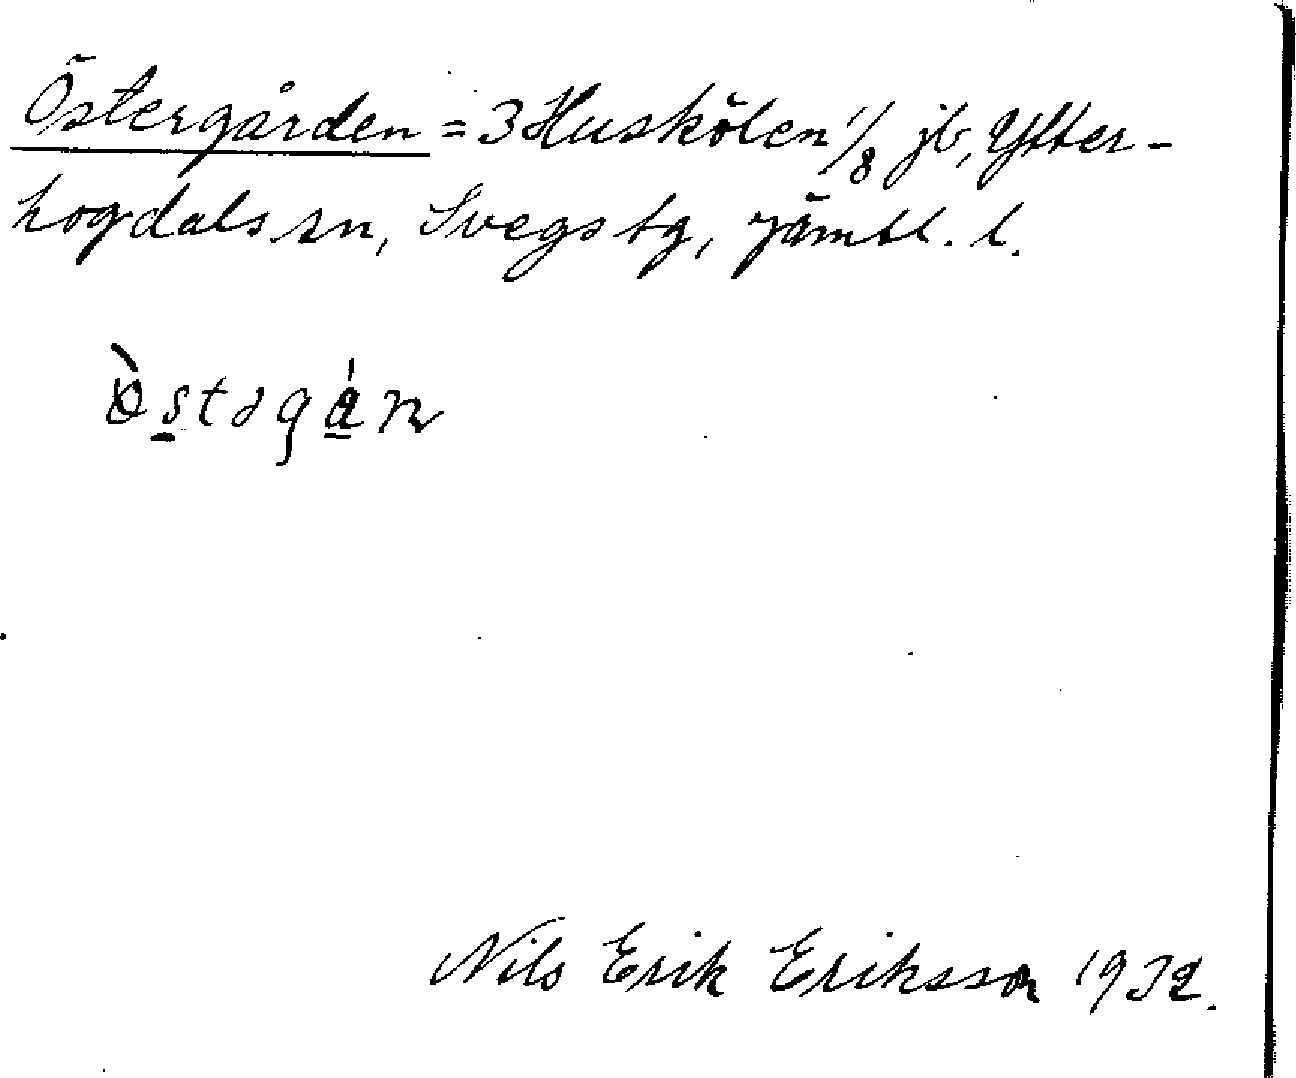 Östergården = 3 Huskölen 1/8 jb, Ytter-
hogdals sn, Svegs tg, Jämtl. l.
Nils Erik Eriksson 1932.